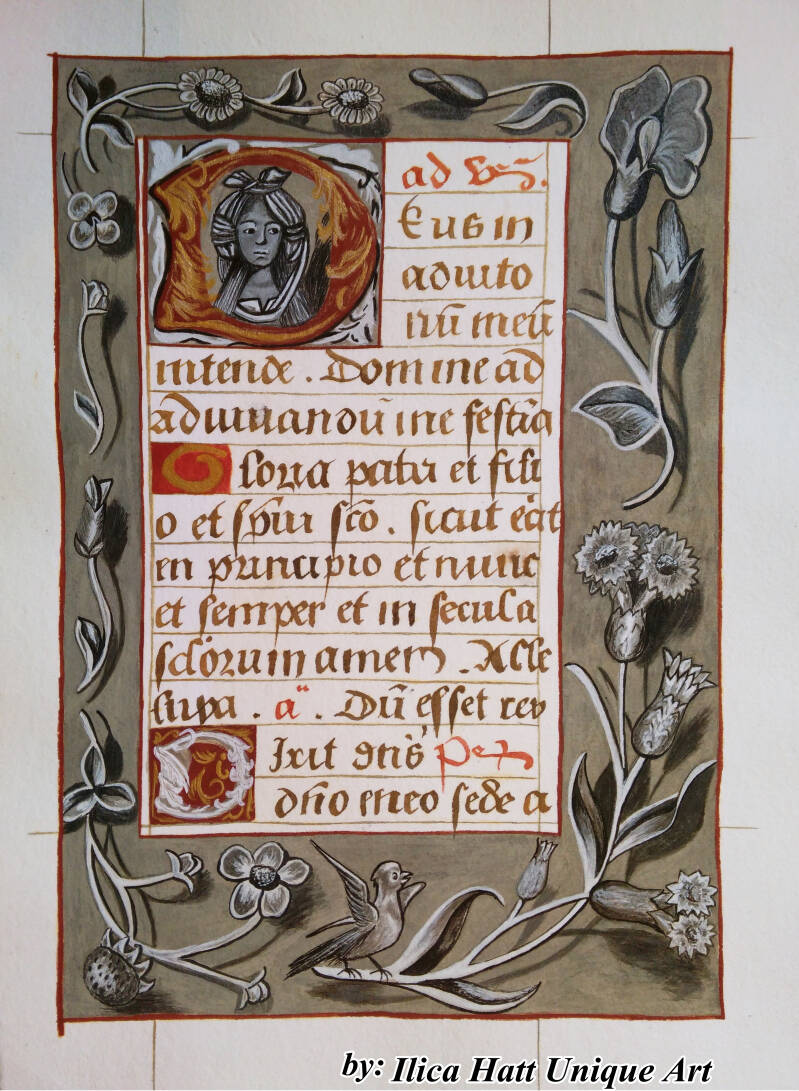 ad ves̄.
Deus in
adiuto
riū meū
intende . Domine ad
adiuuandū me festīa
Gloria patri et fili
o et sp̄ui scō . sicut erāt
en principio et nunc
et semper et in secula
sclōrum amen . Alle
luya . a" . Dū esset rex
Dixit dn̄s Ps
dn̄o meo sede a
by: Ilica Hatt Unique Art